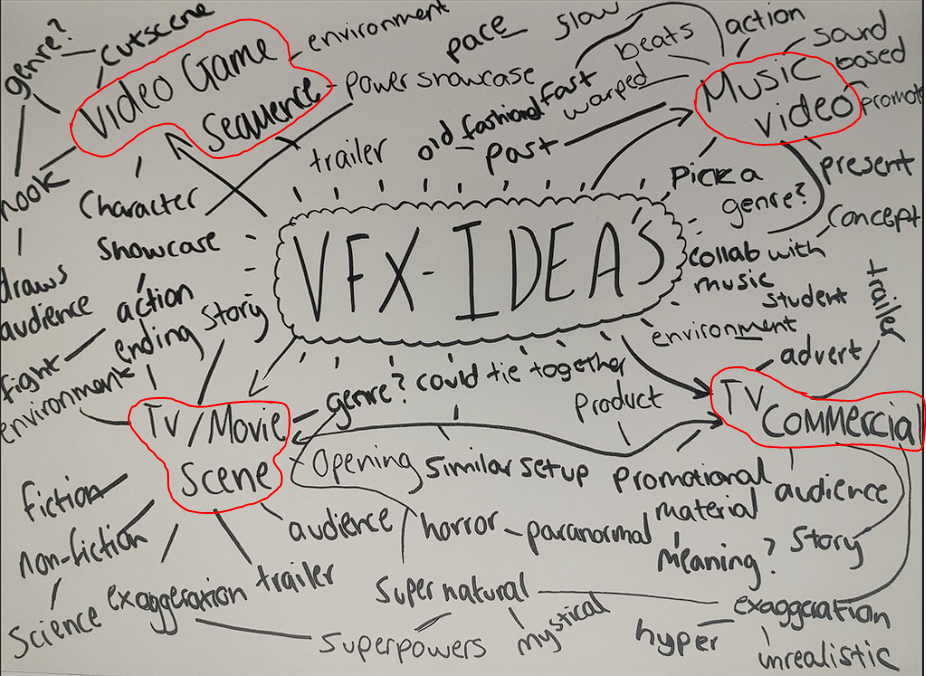 genre?
cutscene
Video Game
Sequence
environment
power showcase
pace
slow
fast
old fashiond
past
warped
beats
action
sound
based
promote
Music
video
present
concept
Pick a
genre?
collab with
music
student
trailer
hook
draws
audience
Character
Showcase
action
fight
VFX-IDEAS
environment
ending
story
TV/Movie
Scene
genre?
could tie together
Opening
similar setup
environment
advert
trailer
product
TV
Commercial
Promotional
material
audience
Story
meaning?
fiction
non-fiction
Science
exaggeration
trailer
audience
horror
paranormal
Supernatural
Superpowers
mystical
hyper
exaggeration
unrealistic